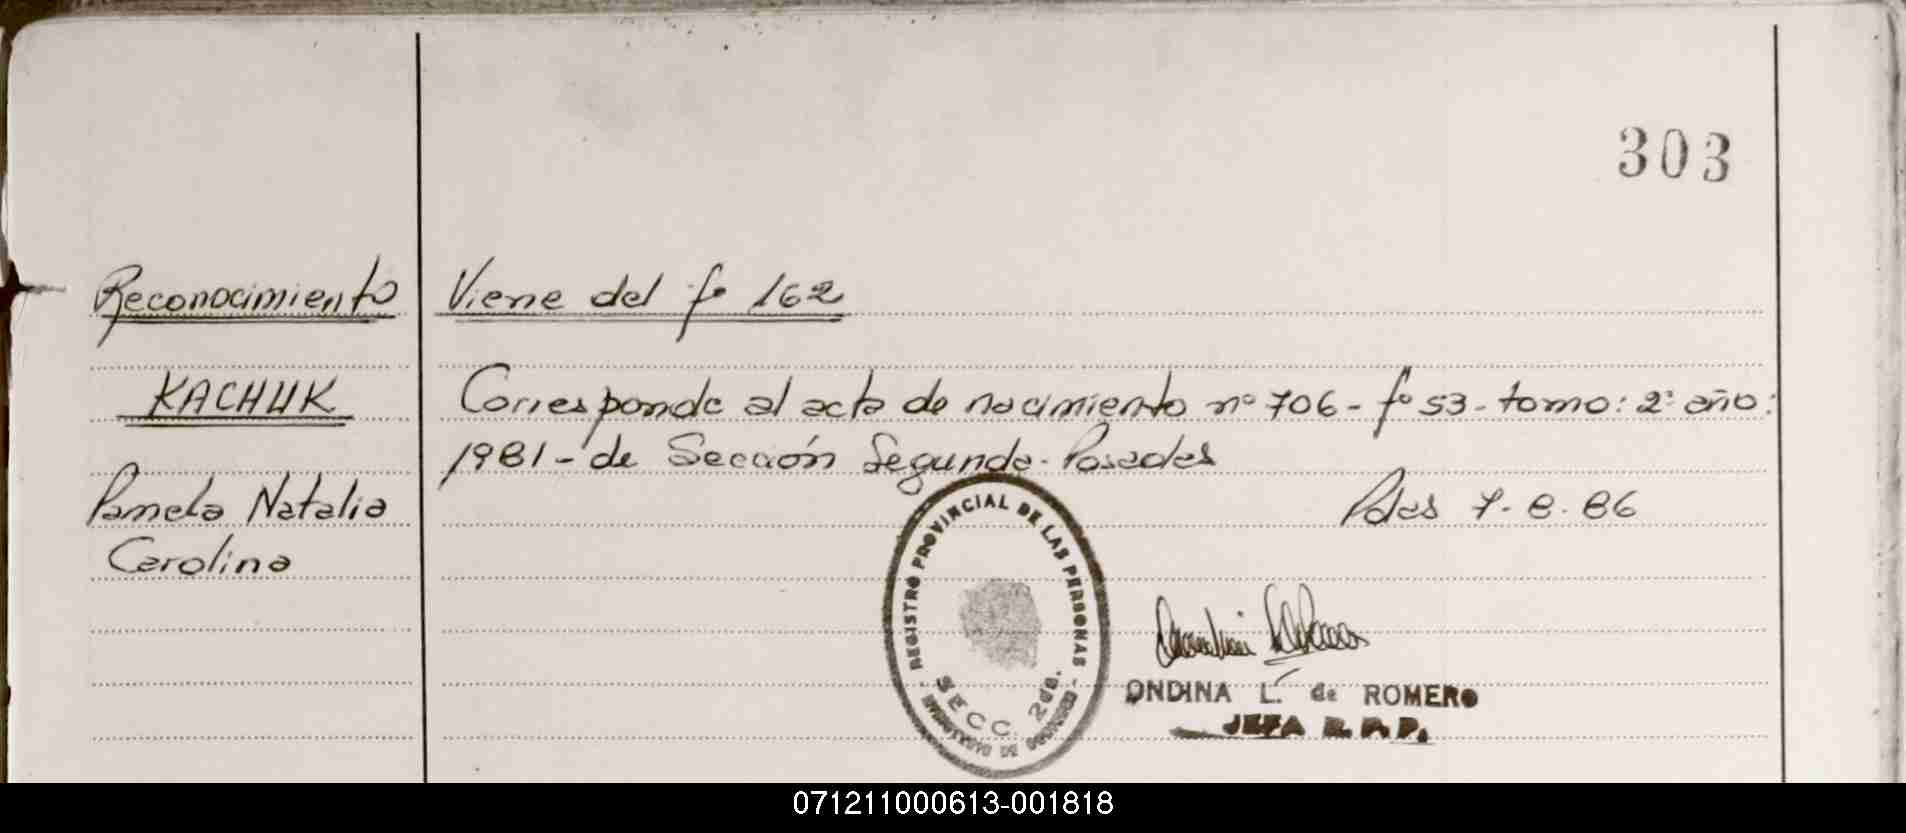 303
Reconocimiento
Viene del fº 162
KACHUK
Corresponde al acta de nacimiento nº 706 - fº 53 - tomo: 2º año:
1981 - de Sección Segunda - Posadas
Pamela Natalia
Carolina
Pdas 7-8-86
REGISTRO PROVINCIAL DE LAS PERSONAS
SECC. 2da.
MINISTERIO DE GOBIERNO
ONDINA L. de ROMERO
JEFA R.P.P.
071211000613-001818